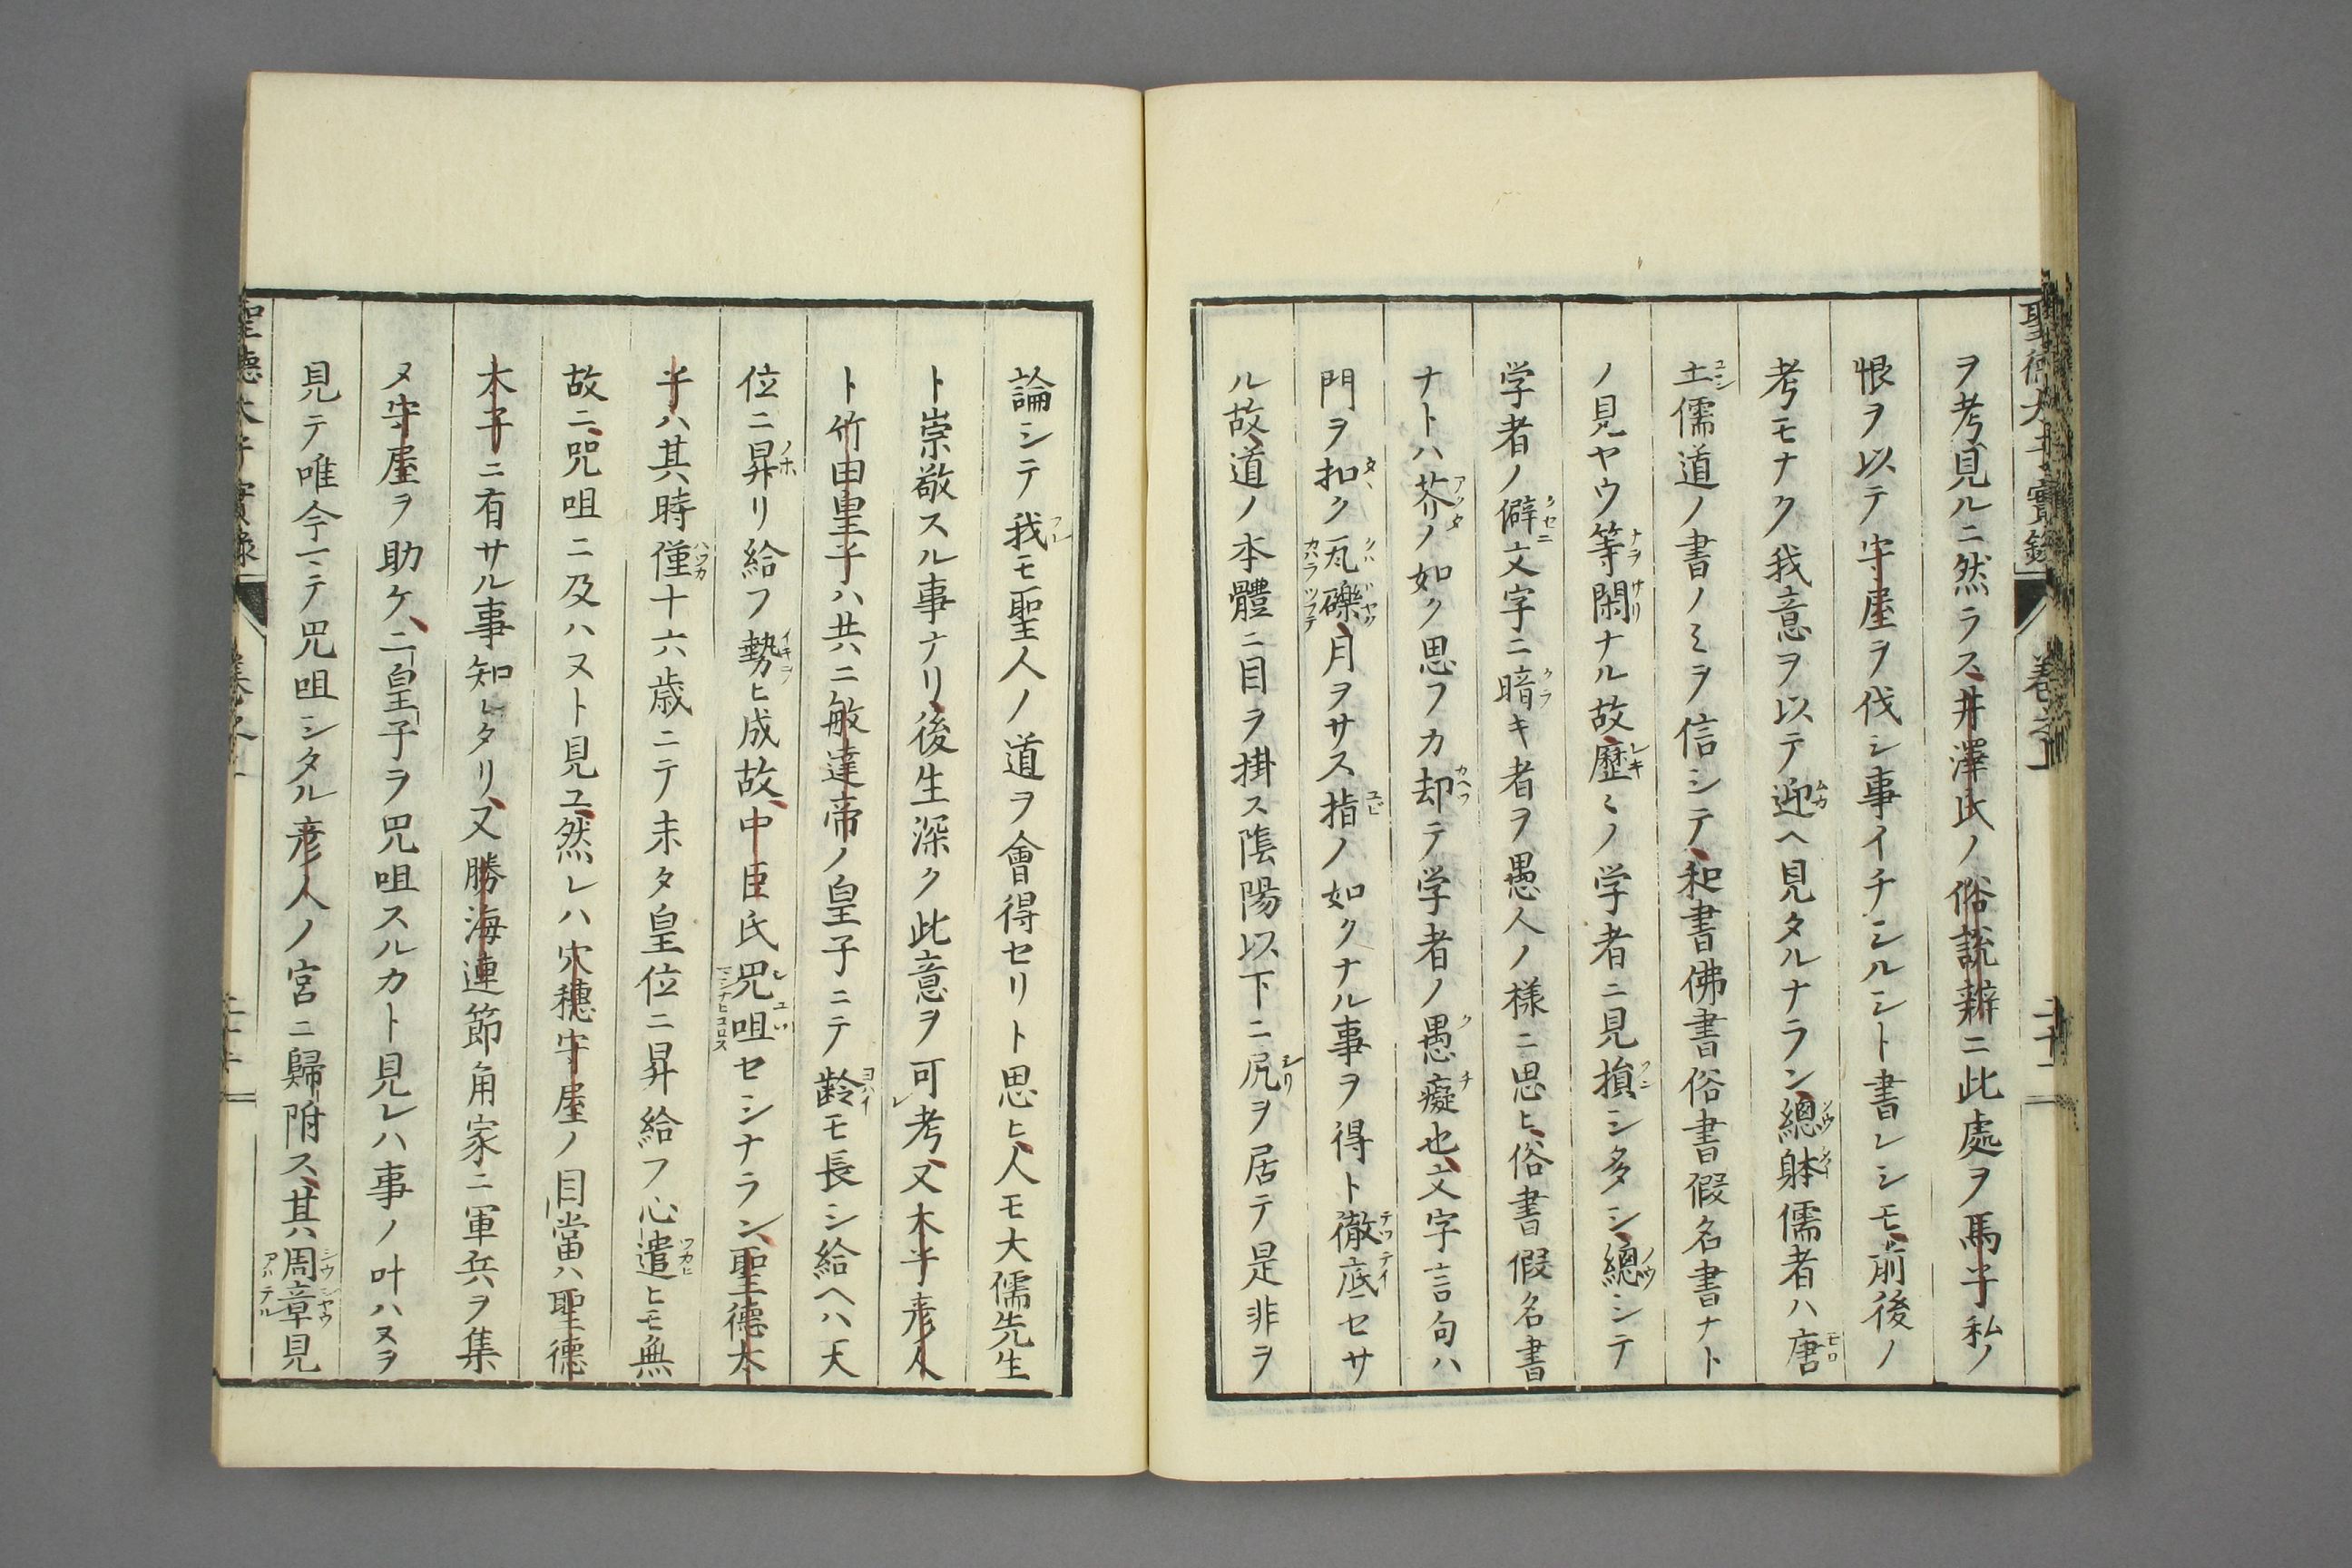 聖德太子實錄 卷之
ヲ考見ルニ然ラス、井澤氏ノ俗説辨ニ此處ヲ馬子私ノ
恨ヲ以テ守屋ヲ伐シ事イチシルシト書レシモ、前後ノ
考モナク我意ヲ以テ迎ヘ見タルナラン、總躰儒者ハ唐
土儒道ノ書ノミヲ信シテ、和書佛書俗書假名書ナト
ノ見ヤウ等閑ナル故、歷〻ノ学者ニ見損シ多シ、總シテ
学者ノ僻文字ニ暗キ者ヲ愚人ノ様ニ思ヒ、俗書假名書
ナトハ芥ノ如ク思フカ却テ学者ノ愚癡也、文字言句ハ
門ヲ扣ク瓦礫、月ヲサス指ノ如クナル事ヲ得ト徹底セサ
ル故、道ノ本體ニ目ヲ掛ス陰陽以下ニ尻ヲ居テ是非ヲ
論シテ我モ聖人ノ道ヲ會得セリト思ヒ、人モ大儒先生
ト崇敬スル事ナリ、後生深ク此意ヲ可レ考、又太子彦人
ト竹田皇子ハ共ニ敏達帝ノ皇子ニテ齢モ長シ給ヘハ天
位ニ昇リ給フ勢ヒ成故、中臣氏咒咀セシナラン、聖德太
子ハ其時僅十六歳ニテ未タ皇位ニ昇給フ心遣ヒモ無
故ニ、咒咀ニ及ハヌト見ユ、然レハ穴穗守屋ノ目當ハ聖德
太子ニ有サル事知レタリ、又勝海連節角家ニ軍兵ヲ集
ヌ守屋ヲ助ケ、二皇子ヲ咒咀スルカト見レハ事ノ叶ハヌヲ
見テ唯今マテ咒咀シタル彦人ノ宮ニ歸附ス、其周章見
聖德太子實錄